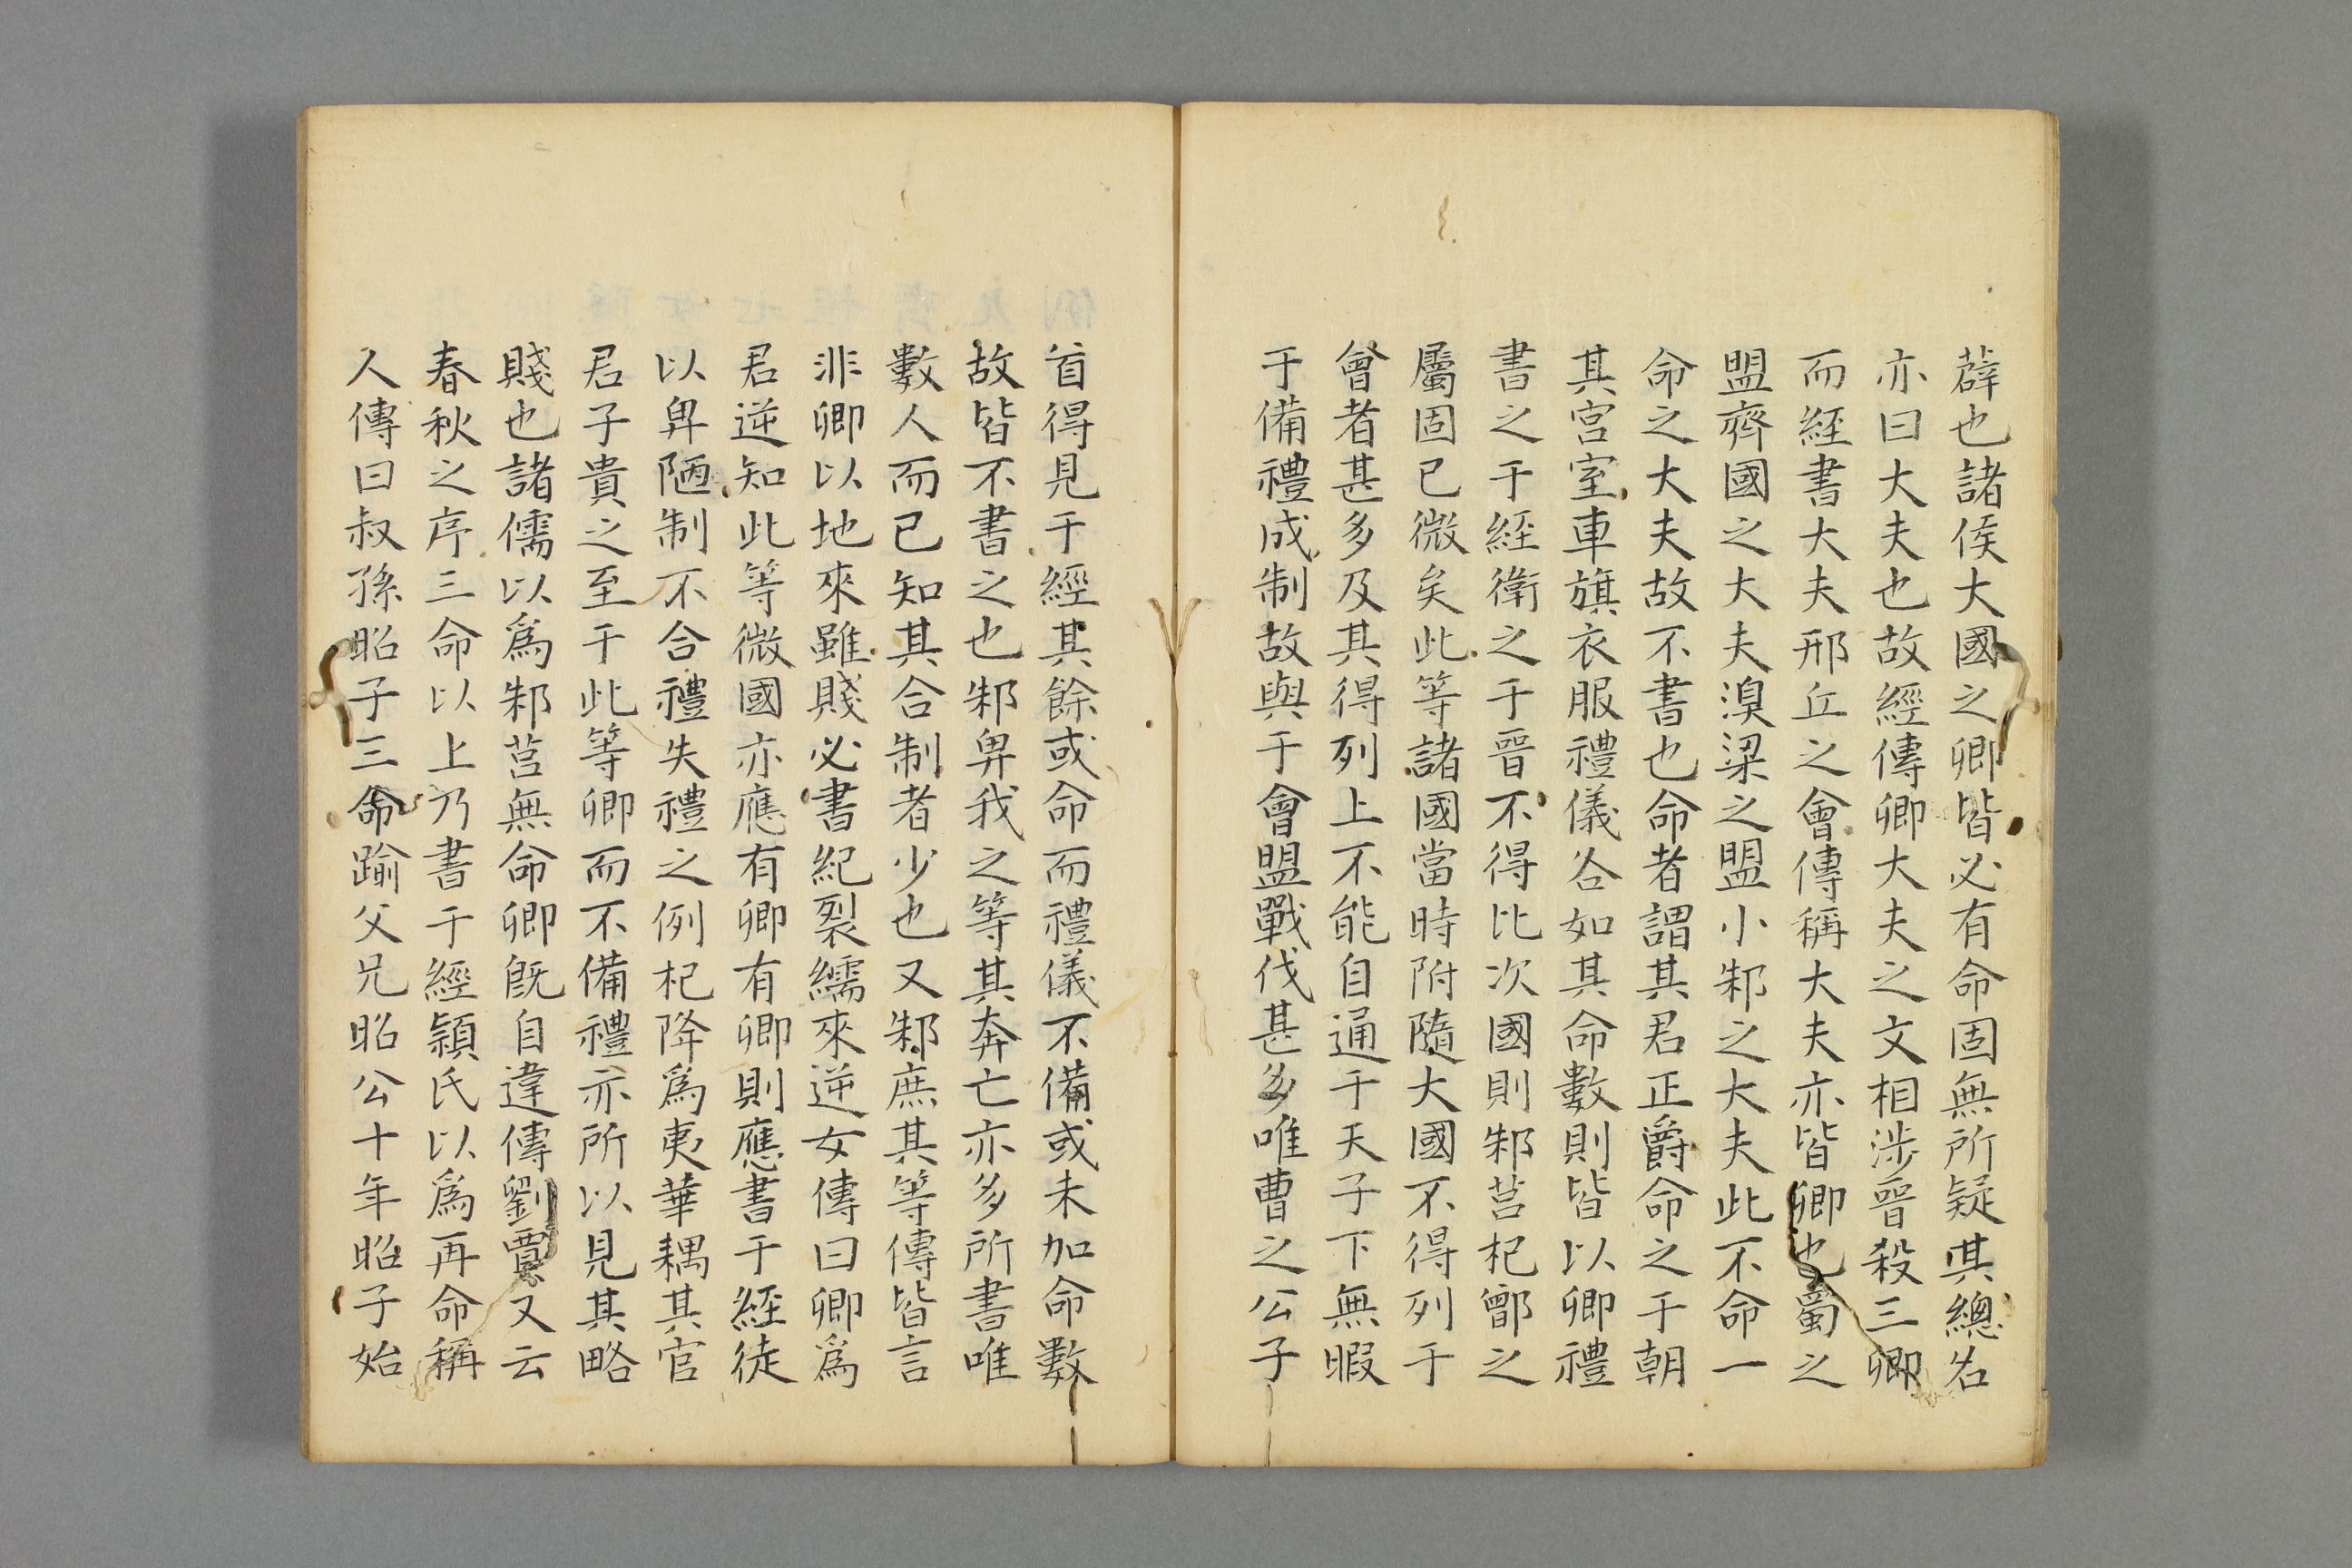 薛也諸侯大國之卿皆必有命固無所疑其總名
亦曰大夫也故經傳卿大夫之文相涉晉殺三卿
而經書大夫邢丘之會傳稱大夫亦皆卿也蜀之
盟齊國之大夫溴梁之盟小邾之大夫此不命一
命之大夫故不書也命者謂其君正爵命之于朝
其宮室車旗衣服禮儀各如其命數則皆以卿禮
書之于經衛之于晉不得比次國則邾莒杞鄫之
屬固已微矣此等諸國當時附隨大國不得列于
會者甚多及其得列上不能自通于天子下無暇
于備禮成制故與于會盟戰伐甚多唯曹之公子
首得見于經其餘或命而禮儀不備或未加命數
故皆不書之也邾卑我之等其奔亡亦多所書唯
數人而已知其合制者少也又邾庶其等傳皆言
非卿以地來雖賤必書紀裂繻來逆女傳曰卿爲
君逆知此等微國亦應有卿有卿則應書于經徒
以卑陋制不合禮失禮之例杞降爲夷華耦其官
君子貴之至于此等卿而不備禮亦所以見其略
賤也諸儒以爲邾莒無命卿旣自違傳劉賈又云
春秋之序三命以上乃書于經潁氏以爲再命稱
人傳曰叔孫昭子三命踰父兄昭公十年昭子始